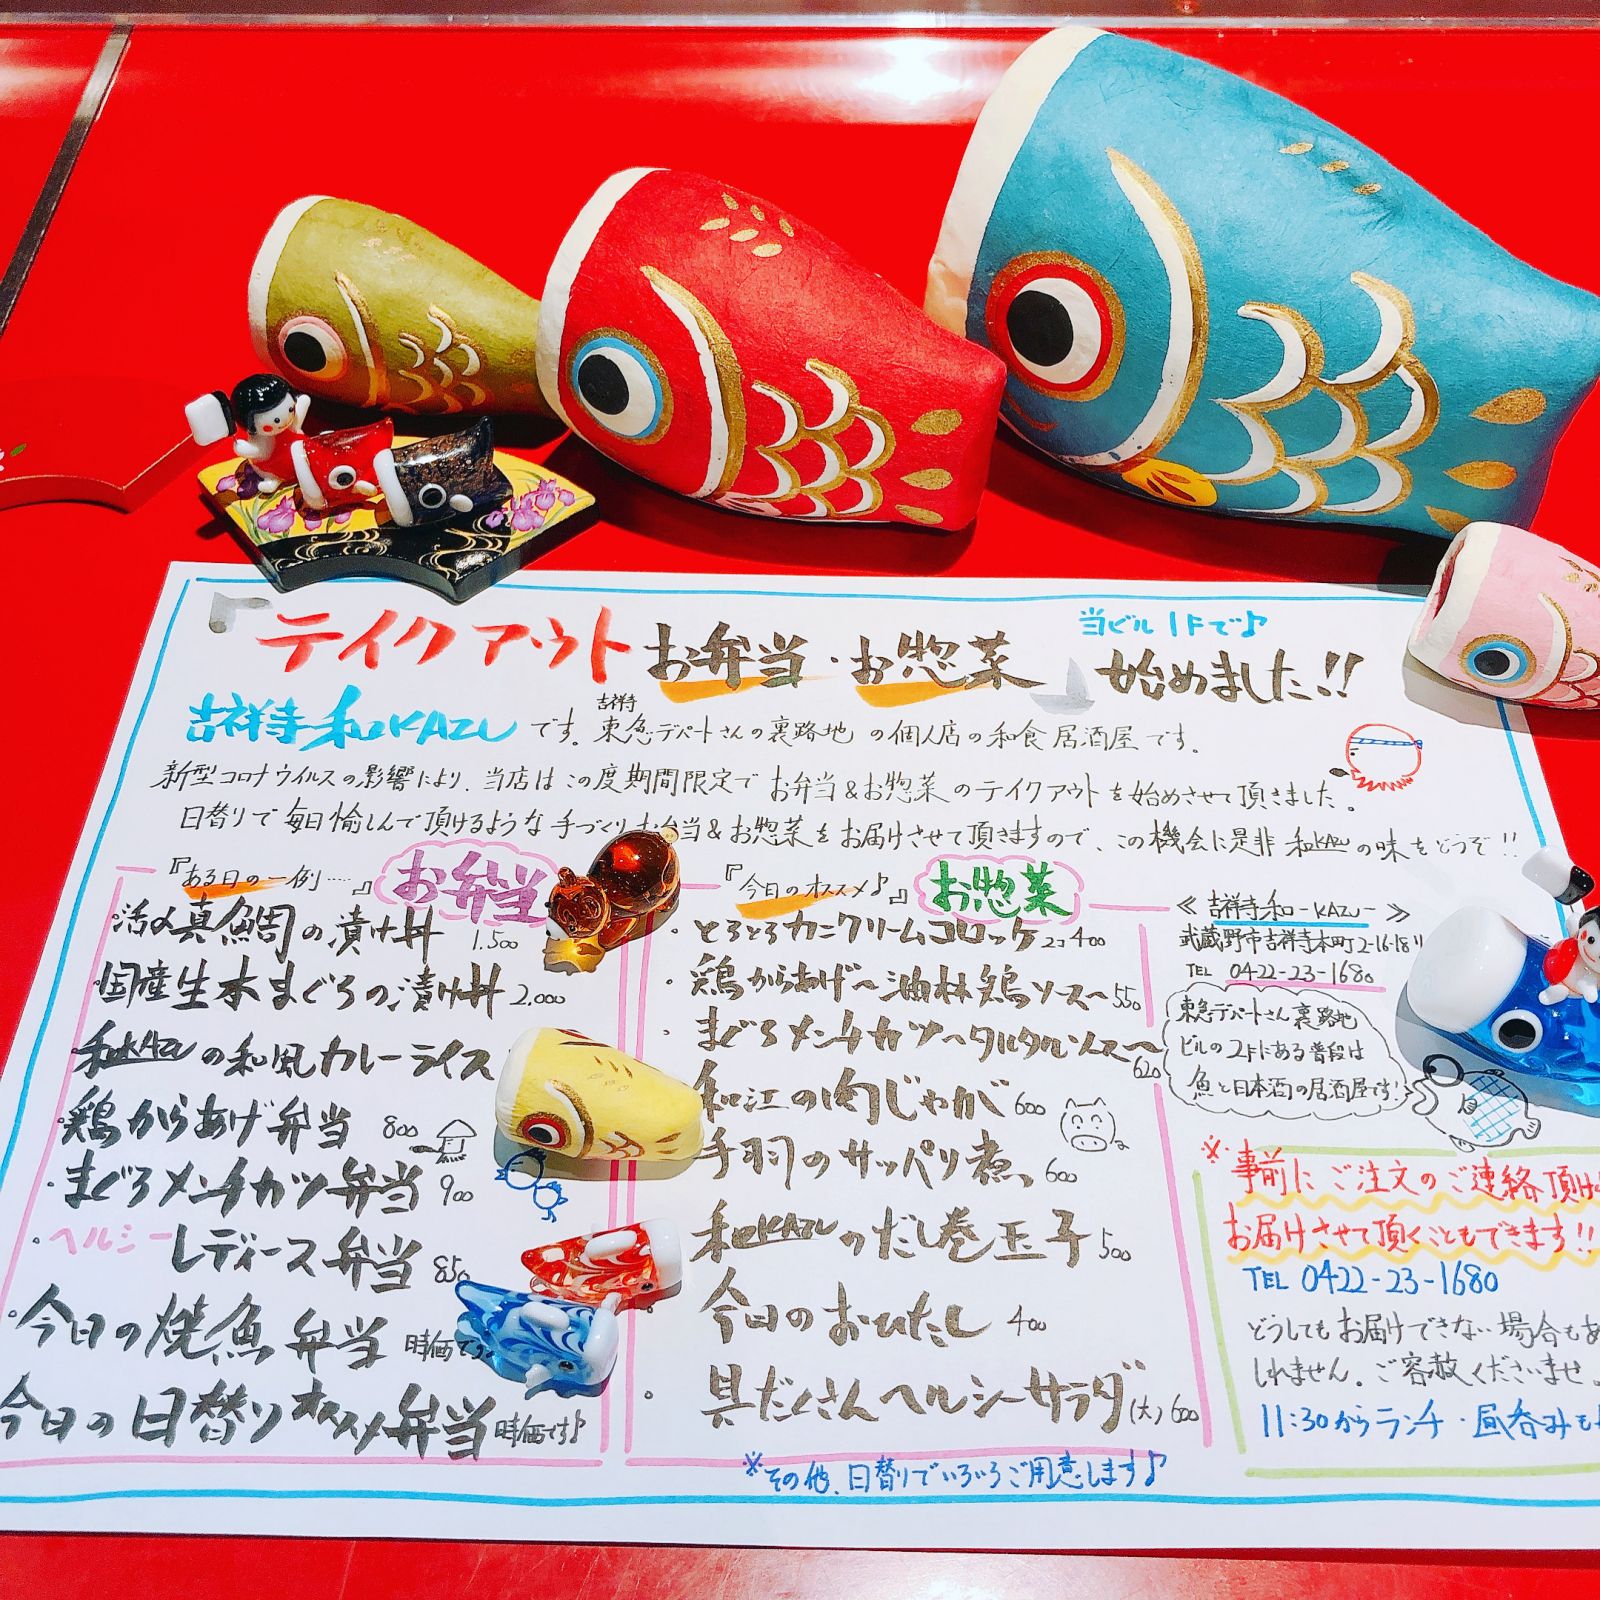 『テイクアウト お弁当・お惣菜』始めました!!
当ビル1Fで♪
吉祥寺 和KAZU です。吉祥寺 東急デパートさんの裏路地の個人店の和食居酒屋です。
新型コロナウイルスの影響により、当店はこの度期間限定でお弁当&お惣菜のテイクアウトを始めさせて頂きました。
日替りで毎日愉しんで頂けるような手づくりお弁当&お惣菜をお届けさせて頂きますので、この機会に是非和KAZUの味をどうぞ!!
『ある日の一例……』 お弁当
・活〆真鯛の漬け丼 1.500
・国産生本まぐろの漬け丼 2.000
和KAZUの和風カレーライス
・鶏からあげ弁当 800
・まぐろメンチカツ弁当 900
・ヘルシーレディース弁当 850
・今日の焼魚弁当 時価です
今日の日替りオススメ弁当 時価です♪
『今日のオススメ♪』 お惣菜
・とろとろカニクリームコロッケ 2コ 400
・鶏からあげ〜油淋鶏ソース〜 550
・まぐろメンチカツ〜タルタルソース〜 620
和江の肉じゃが 600
手羽のサッパリ煮 600
和KAZUのだし巻玉子 500
今日のおひたし 400
・具だくさんヘルシーサラダ(大) 600
※その他、日替りでいろいろご用意します♪
≪吉祥寺 和-KAZU-≫
武蔵野市吉祥寺本町2-16-18
TEL 0422-23-1680
東急デパートさん裏路地
ビルの2Fにある普段は
魚と日本酒の居酒屋です!
※事前にご注文のご連絡頂け
お届けさせて頂くこともできます!!
TEL 0422-23-1680
どうしてもお届けできない場合もあ
しれません。ご容赦くださいませ。
11:30からランチ・昼呑みも